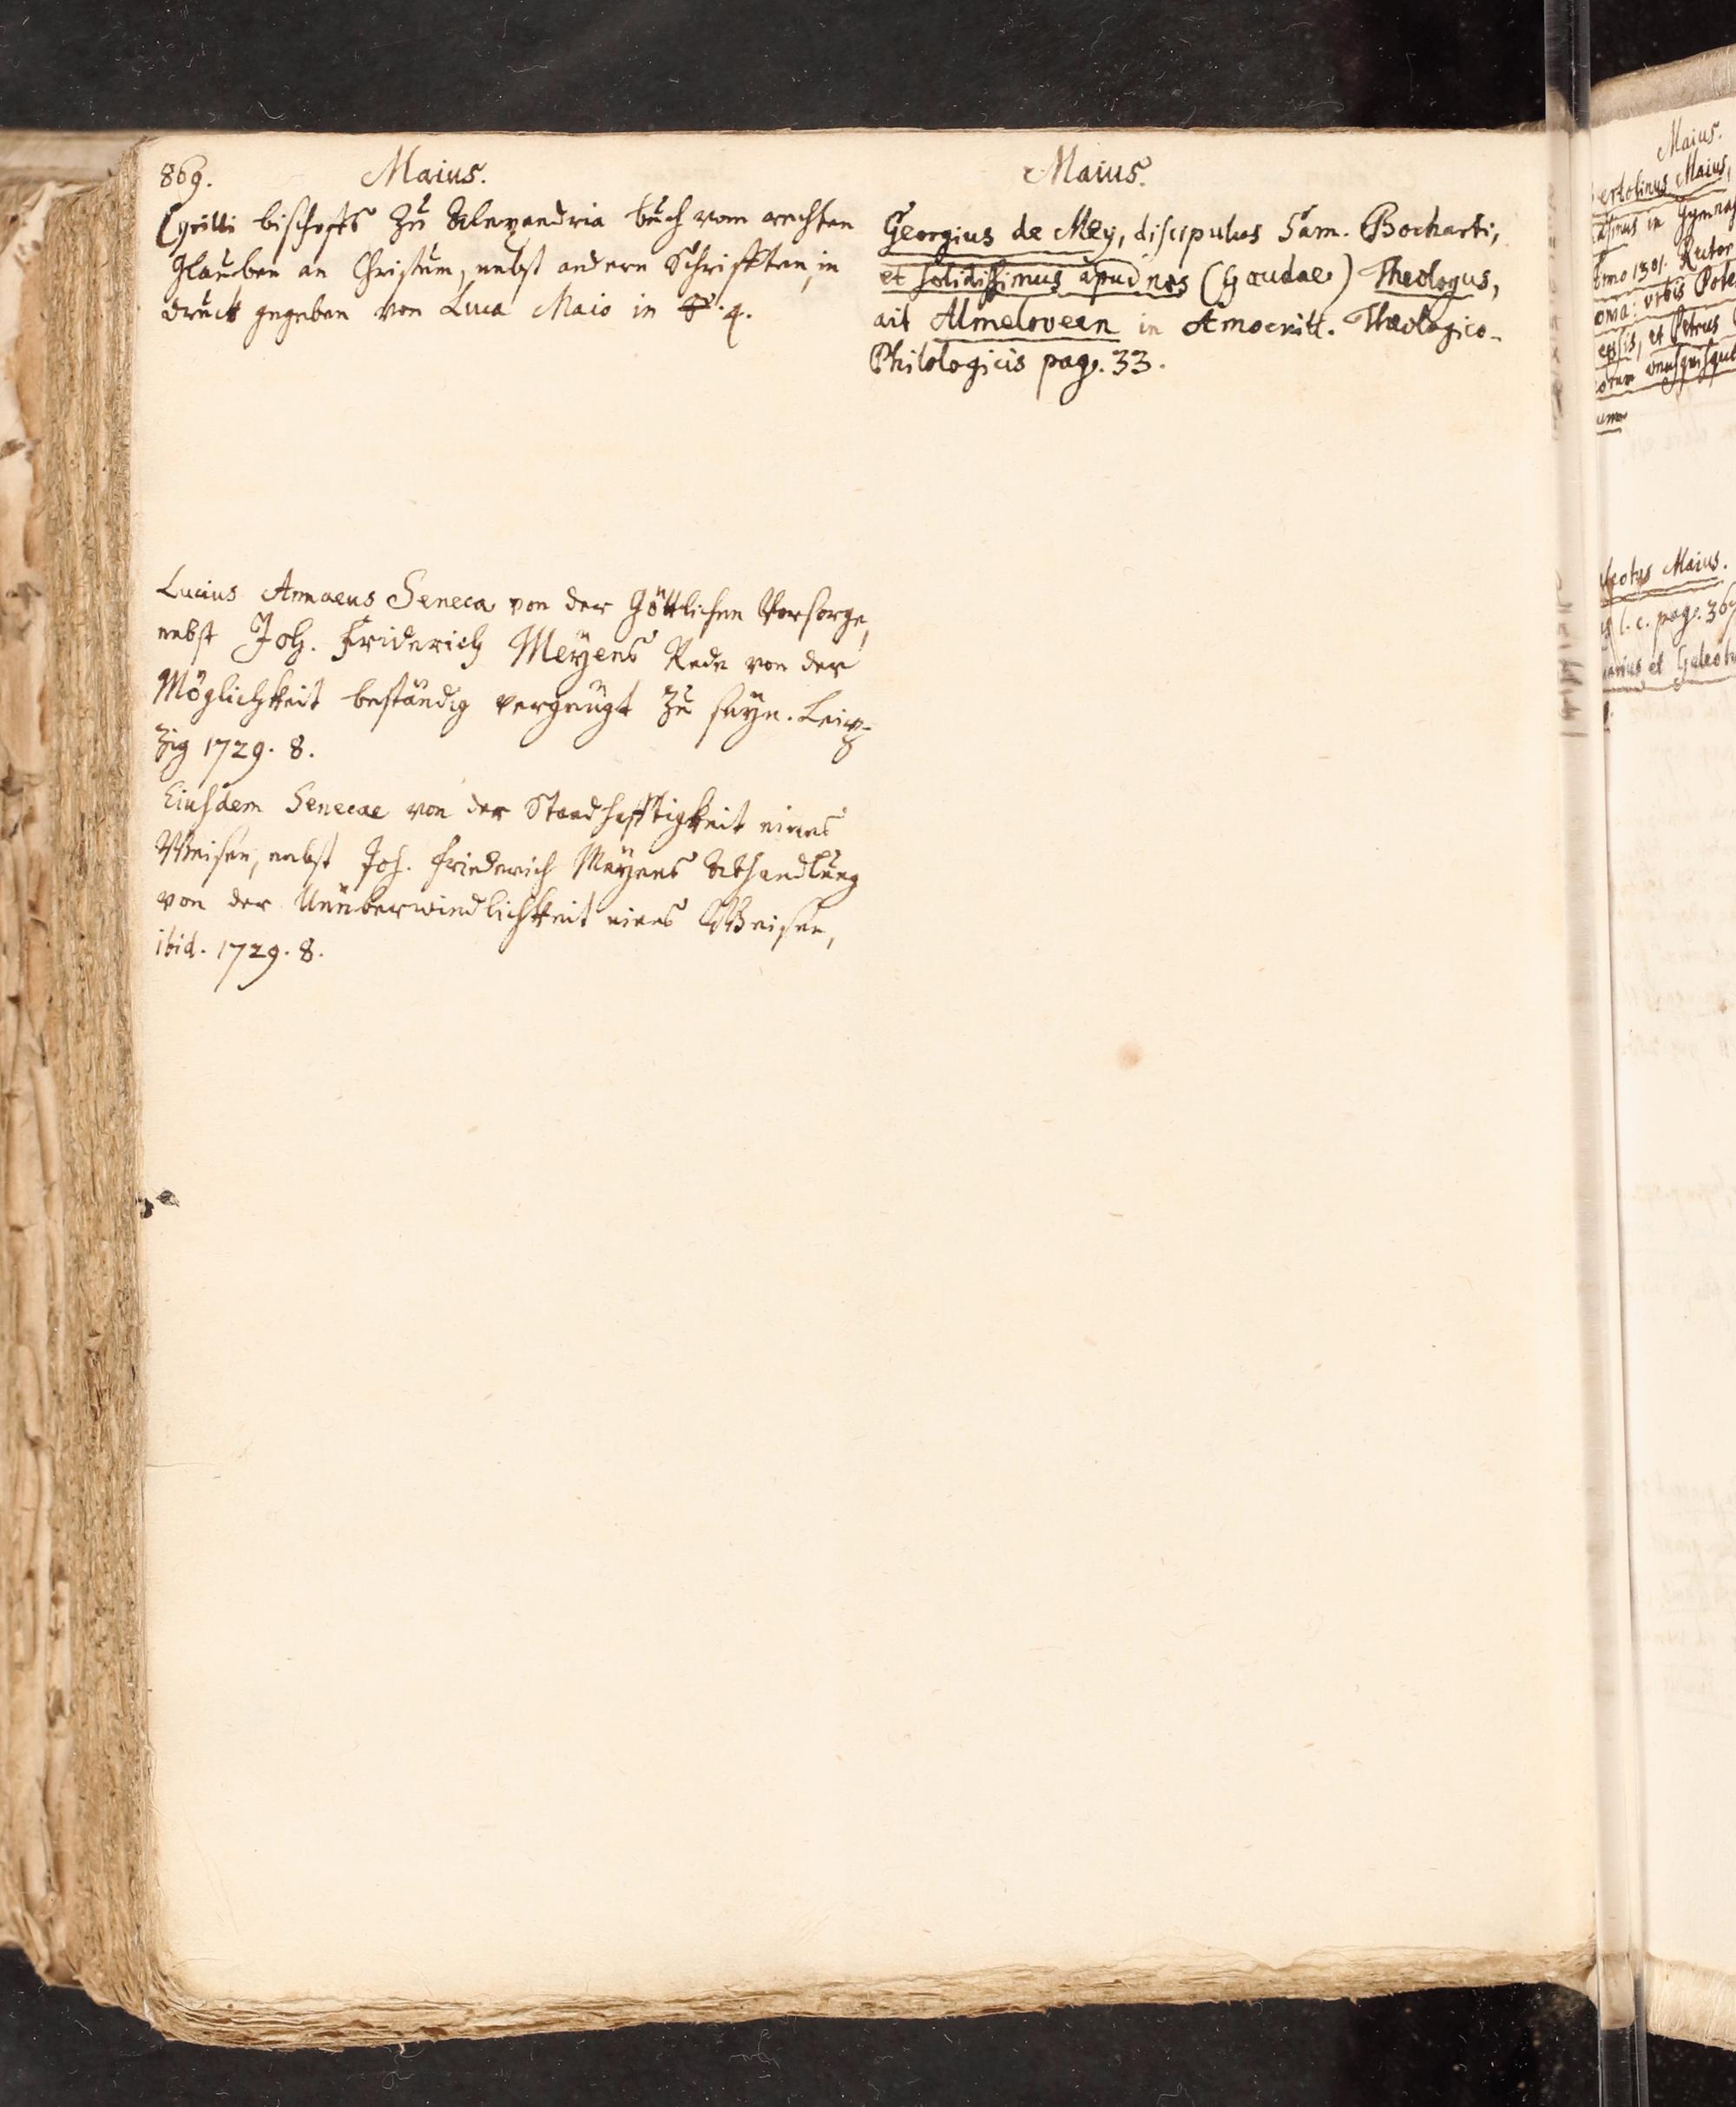 869. Maius.
Cyrilli bischoffs zu Alexandria buch vom rechten
Glauben an Christum, nebst andern Schrifften, in
druck gegeben von Luca Maio in 4.
Lucius Annaeus Seneca von der Göttlichen Vorsorge,
nebst Joh. Friderich Meyens Rede von der
Möglichkeit beständig vergnügt zu seyn. Leip-
zig 1729. 8.
Eiusdem Senecae von der Standhafftigkeit eines
Weisen, nebst Joh. Friederich Meyens Abhandlung
von der Unüberwindlichkeit eines Weisen,
ibid. 1729. 8.
Maius.
Georgius de Mey, discipulus Sam. Bocharti,
et solidissimus apud nos (Goudae) Theologus,
ait Almeloveen in Amoenitt. Theologico-
Philologicis pag. 33.
Maius.
Maius,
in
1301. Rector
urbis
et Petrus
unusquisque
Maius.
l. c. pag.
et Galeot